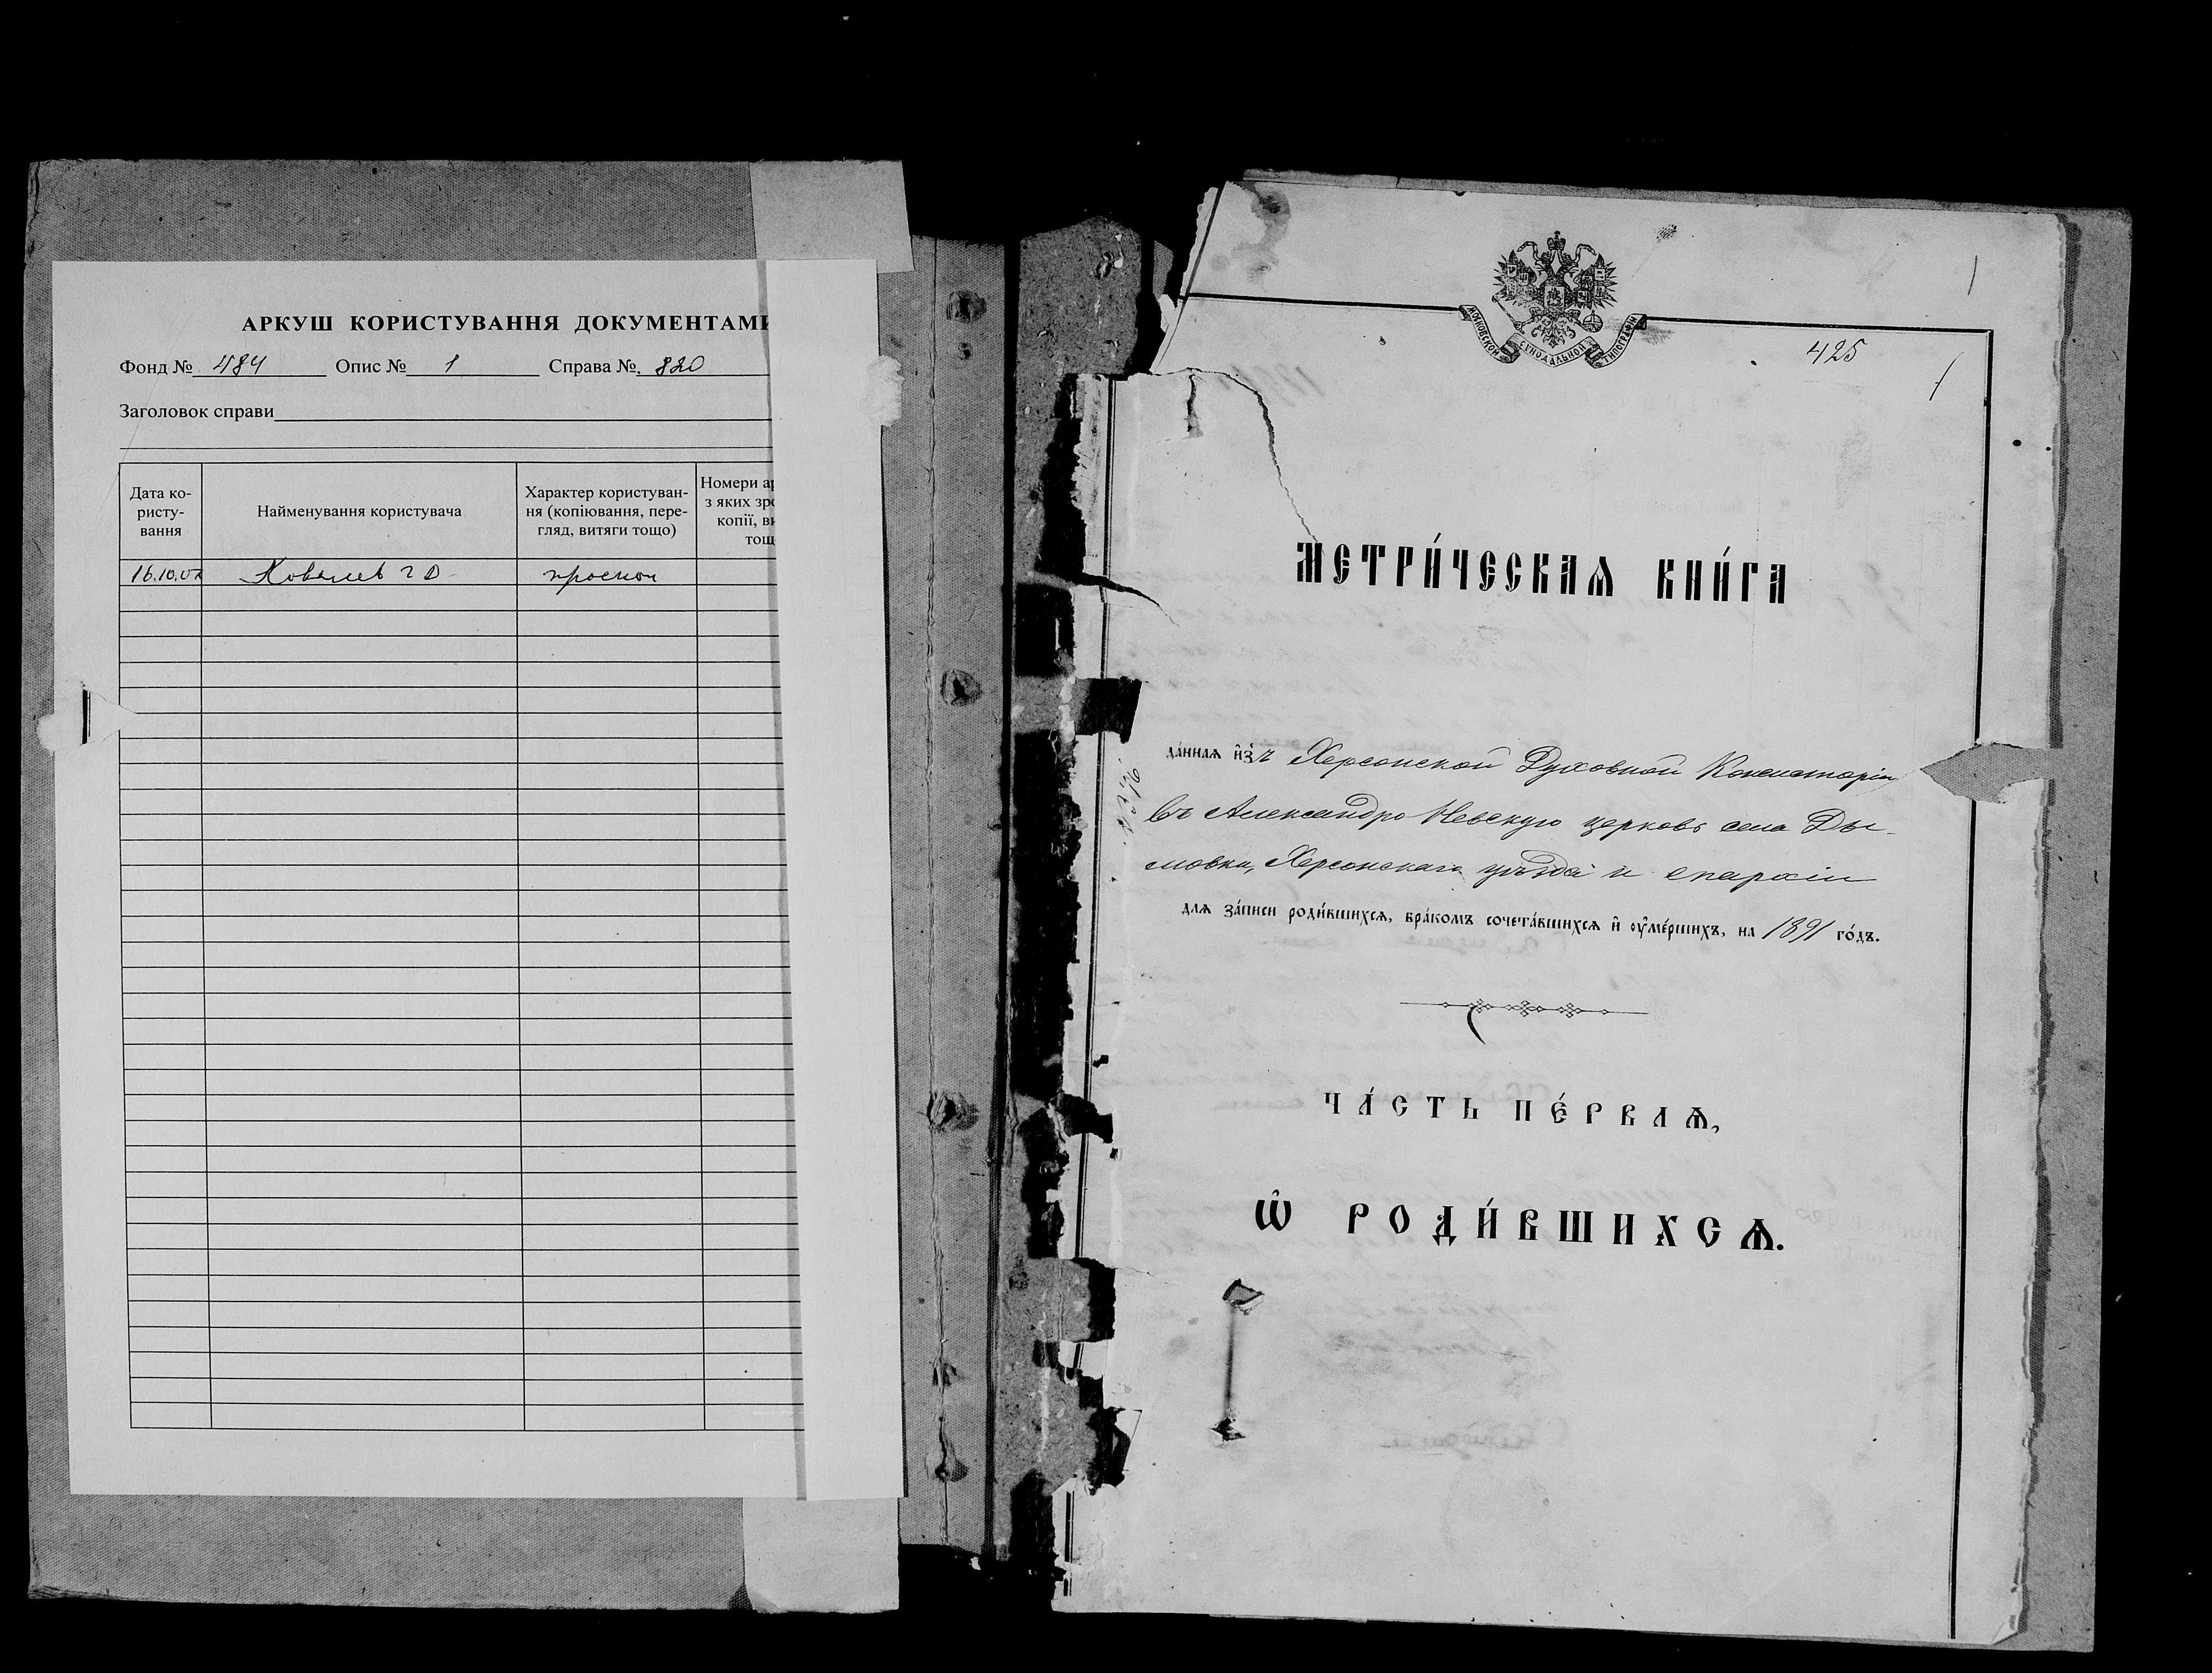 АРКУШ КОРИСТУВАННЯ ДОКУМЕНТАМИ
Фонд № 484 Опис № 1 Справа № 820
Заголовок справи
Дата ко-
ристу-
вання
Найменування користувача
Характер користуван-
ня (копіювання, пере-
гляд, витяги тощо)
Номери
з яких
копії,
16.10.07 Ковалев
1
МОСКОВСКОЙ СИНОДАЛЬНОЙ ТИПОГРАФІИ
425
1
МЕТРИ́ЧЕСКАѦ КНИ́ГА
да́ннаѧ и҆зъ Херсонской Духовной Консисторіи
въ Александро Невскую церковь села Ды-
мовки, Херсонскаго уѣзда и епархіи
для за́писи роди́вшихсѧ, бра́комъ сочета́вшихсѧ и҆ ᲂу҆ме́ршихъ, на 1891 го́дъ.
ЧА́СТЬ ПЕ́РВАѦ,
Ѽ РОДИ́ВШИХСѦ.